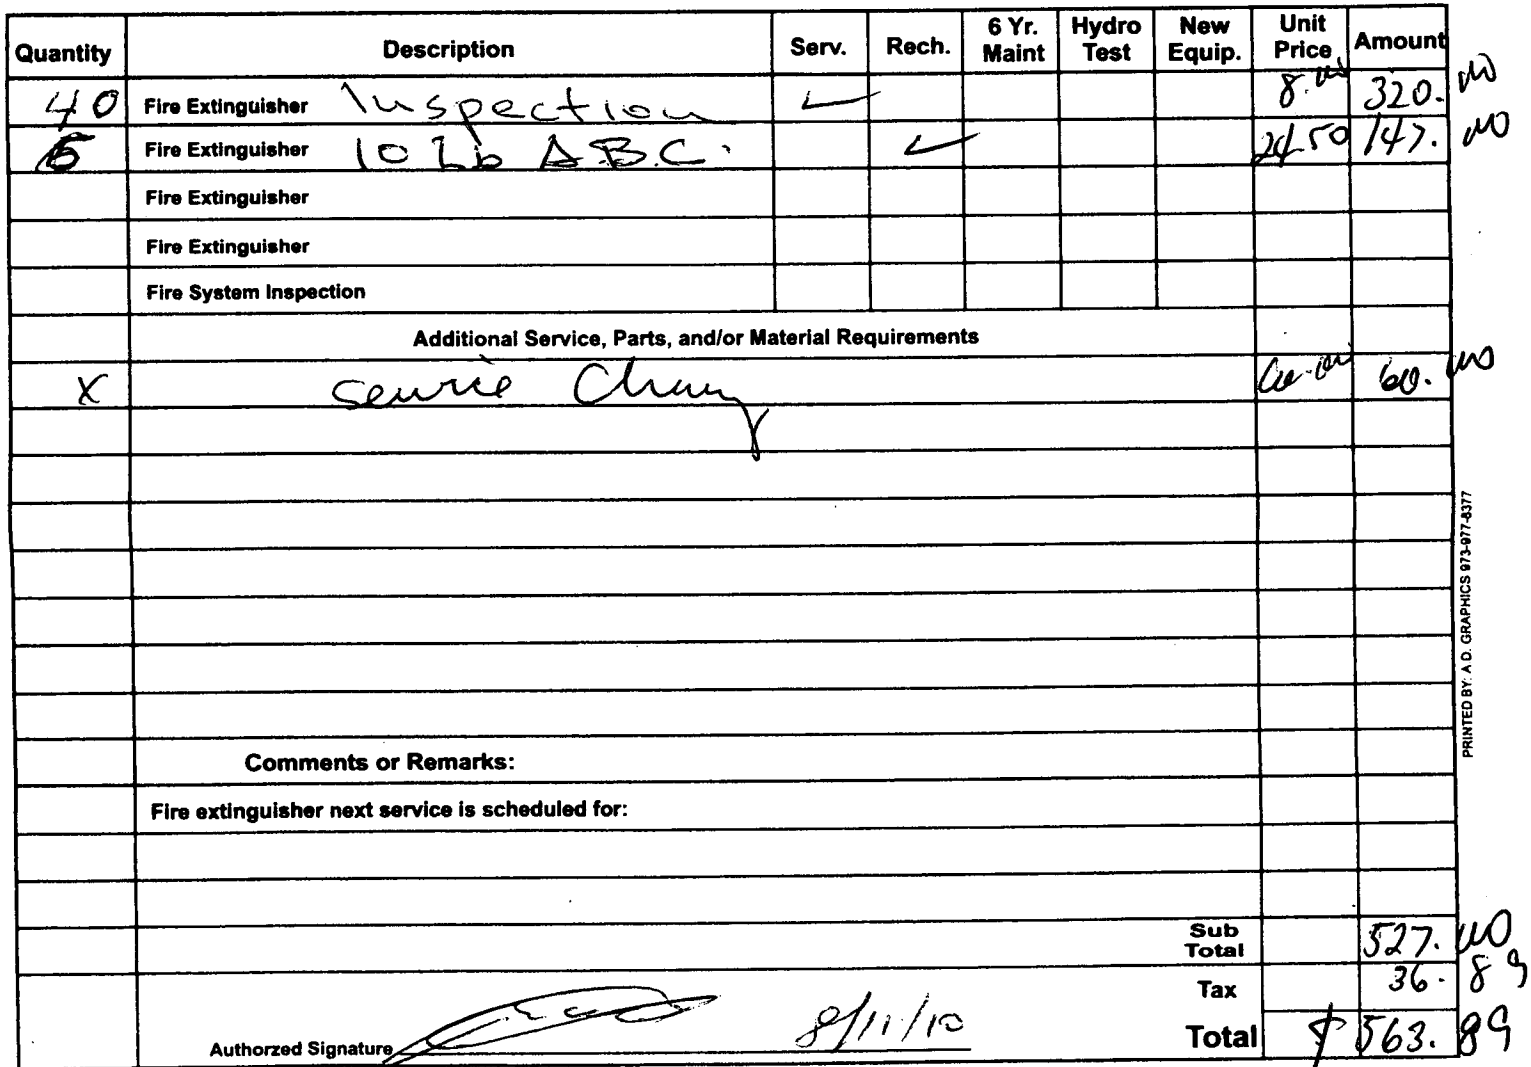 Quantity Description Serv. Rech. 6 Yr. Maint Hydro Test New Equip. Unit Price Amount
40 Fire Extinguisher Inspection ✓ 8.00 320.00
Fire Extinguisher 10 Lb A.B.C. ✓ 24.50 147.00
Fire Extinguisher
Fire Extinguisher
Fire System Inspection
Additional Service, Parts, and/or Material Requirements
X Service Charg 60.00
Comments or Remarks:
Fire extinguisher next service is scheduled for:
Sub Total 527.00
Tax 36.89
Authorzed Signature 8/11/10 Total $ 563.89
PRINTED BY: A.D. GRAPHICS 973-977-8377